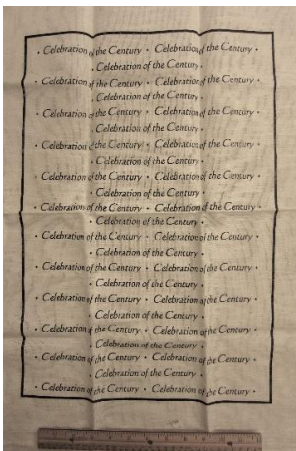 · Celebration of the Century · Celebration of the Century ·
· Celebration of the Century ·
· Celebration of the Century · Celebration of the Century ·
· Celebration of the Century ·
· Celebration of the Century · Celebration of the Century ·
· Celebration of the Century ·
· Celebration of the Century · Celebration of the Century ·
· Celebration of the Century ·
· Celebration of the Century · Celebration of the Century ·
· Celebration of the Century ·
· Celebration of the Century · Celebration of the Century ·
· Celebration of the Century ·
· Celebration of the Century · Celebration of the Century ·
· Celebration of the Century ·
· Celebration of the Century · Celebration of the Century ·
· Celebration of the Century ·
· Celebration of the Century · Celebration of the Century ·
· Celebration of the Century ·
· Celebration of the Century · Celebration of the Century ·
· Celebration of the Century ·
· Celebration of the Century · Celebration of the Century ·
· Celebration of the Century ·
· Celebration of the Century · Celebration of the Century ·